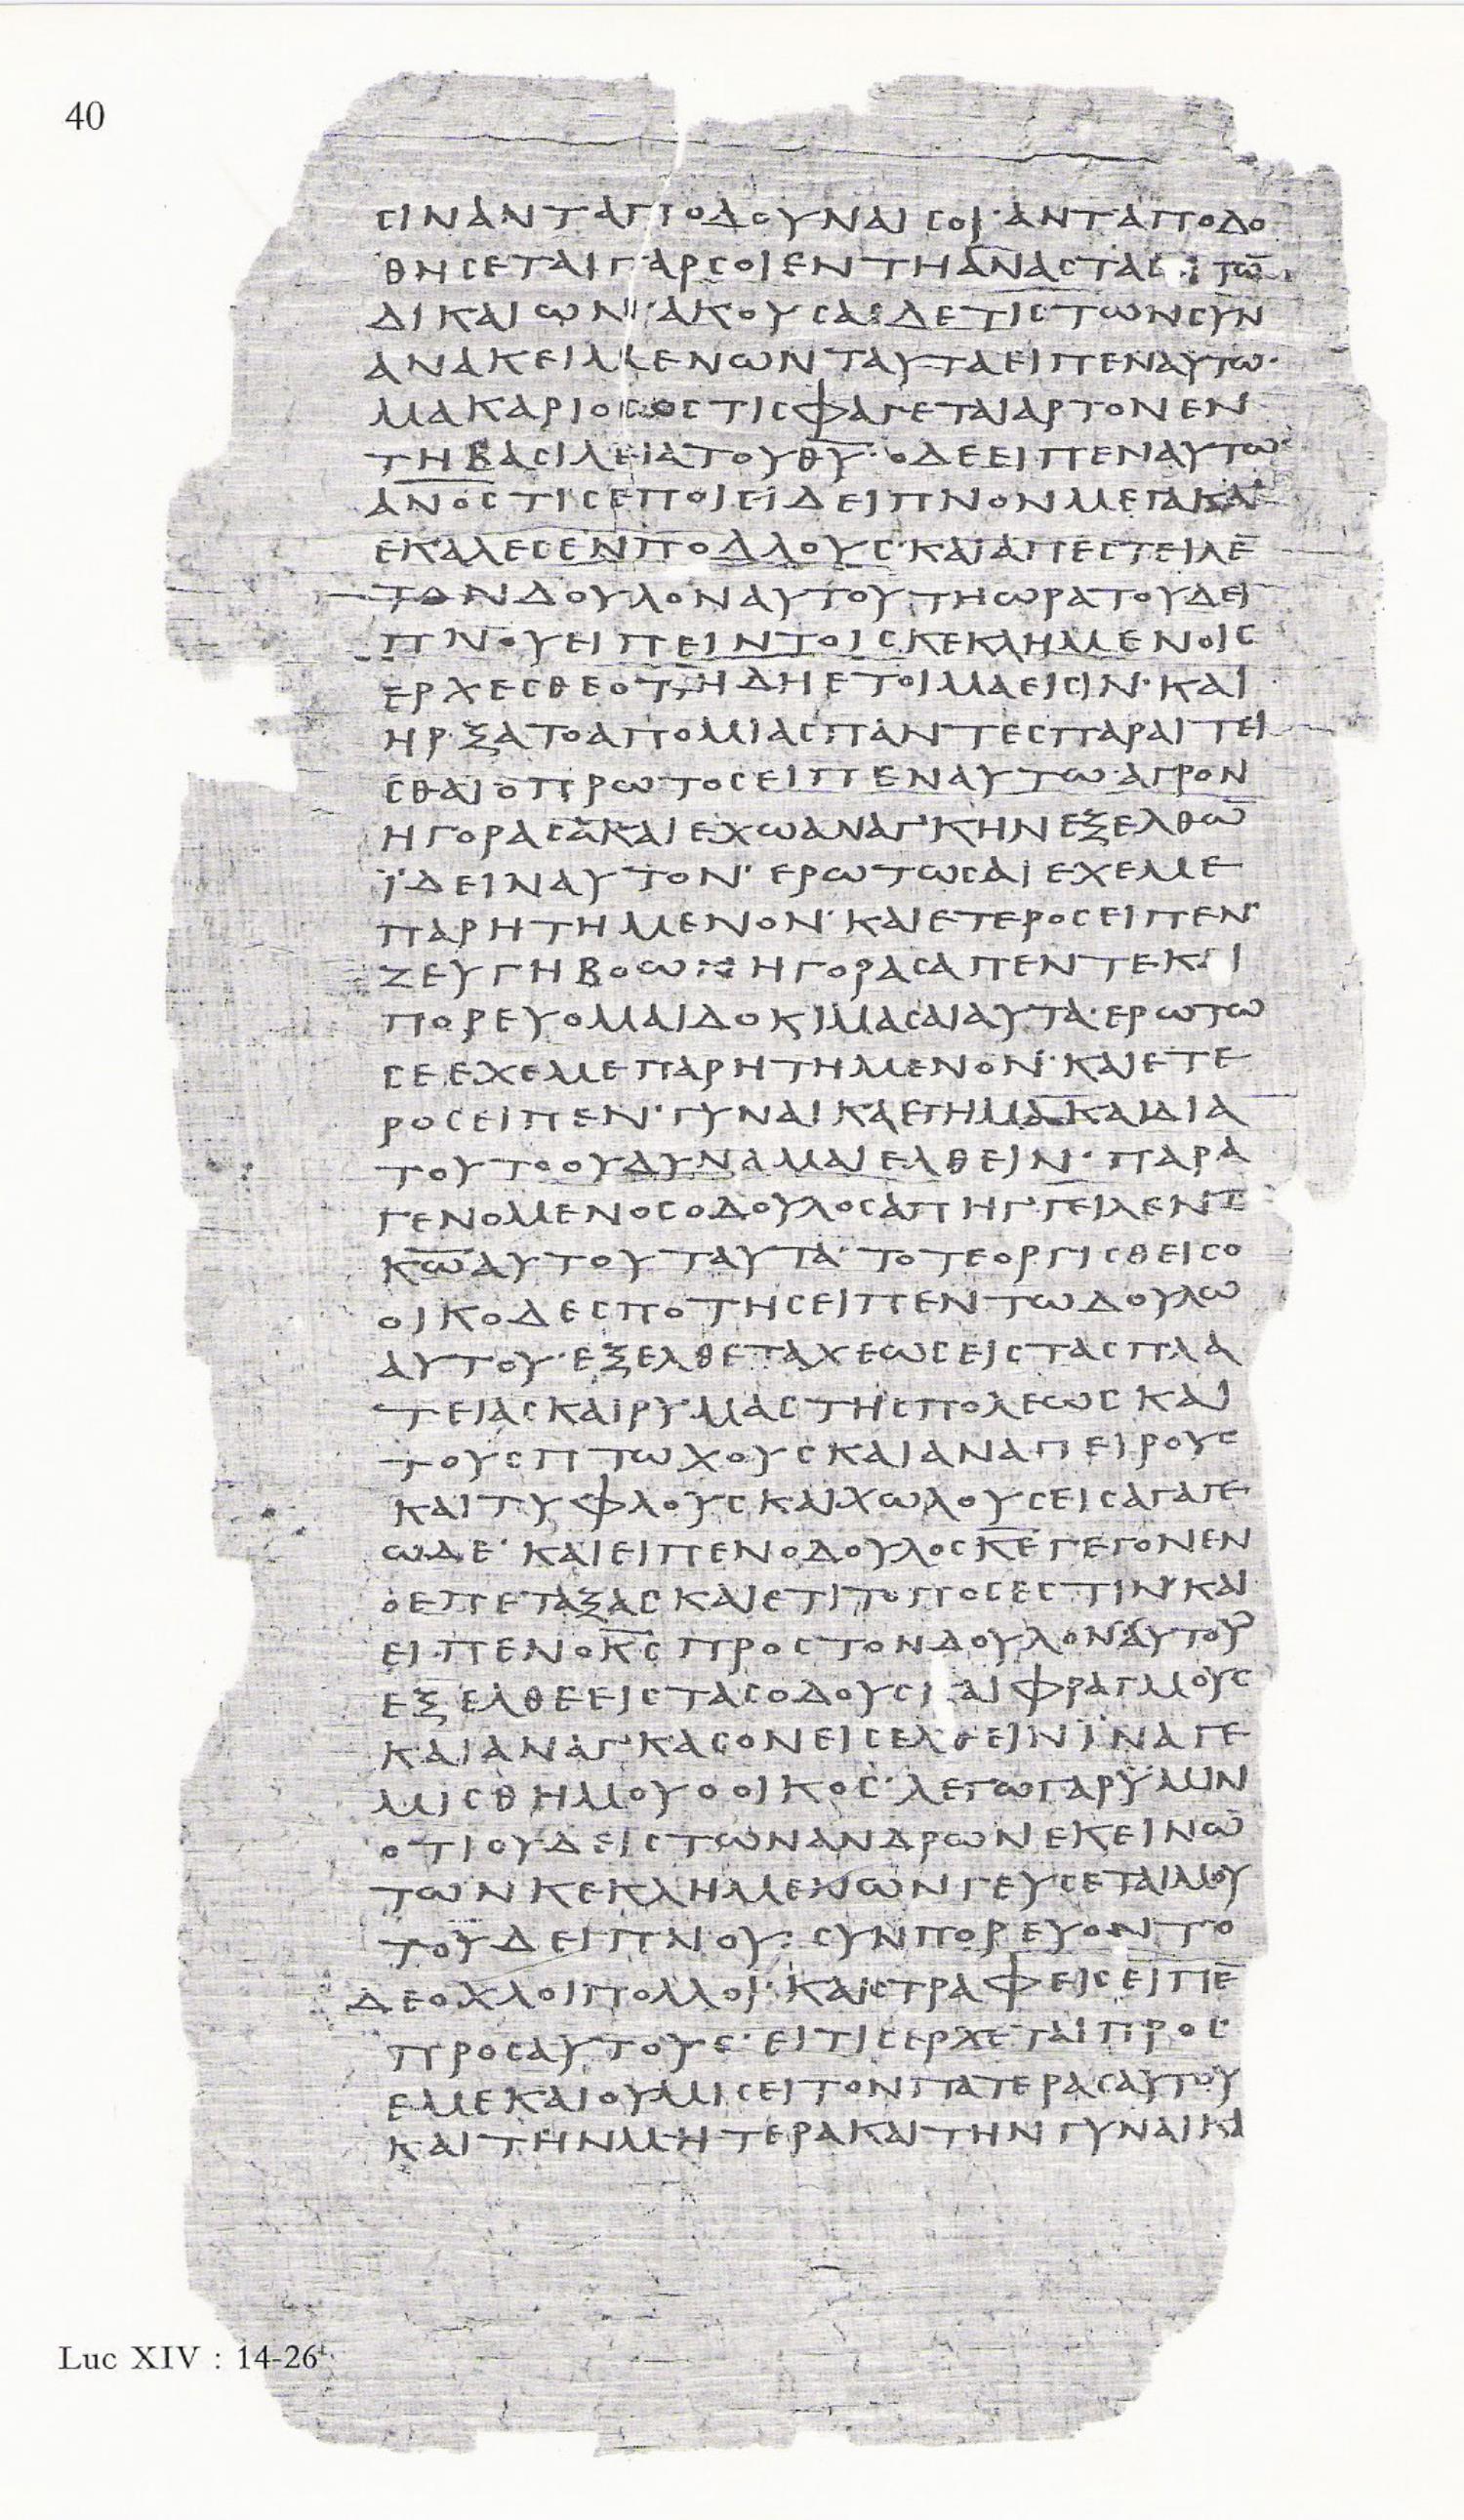 40
ϹΙΝΑΝΤΑΠΟΔΟΥΝΑΙϹΟΙ·ΑΝΤΑΠΟΔΟ
ΘΗϹΕΤΑΙΓΑΡϹΟΙΕΝΤΗΑΝΑϹΤΑϹ ΤΩ̅
ΔΙΚΑΙΩΝ·ΑΚΟΥϹΑϹΔΕΤΙϹΤΩΝϹΥΝ
ΑΝΑΚΕΙΜΕΝΩΝΤΑΥΤΑΕΙΠΕΝΑΥΤΩ·
ΜΑΚΑΡΙΟϹΟϹΤΙϹΦΑΓΕΤΑΙΑΡΤΟΝΕΝ
ΤΗΒΑϹΙΛΕΙΑΤΟΥΘ̅Υ̅·ΟΔΕΕΙΠΕΝΑΥΤΩ
Α̅Ν̅Ο̅Ϲ̅ΤΙϹΕΠΟΙΕΙΔΕΙΠΝΟΝΜΕΓΑΚΑΙ
ΕΚΑΛΕϹΕΝΠΟΛΛΟΥϹ·ΚΑΙΑΠΕϹΤΕΙΛΕ̅
ΤΟΝΔΟΥΛΟΝΑΥΤΟΥΤΗΩΡΑΤΟΥΔΕΙ
ΠΝΟΥΕΙΠΕΙΝΤΟΙϹΚΕΚΛΗΜΕΝΟΙϹ
ΕΡΧΕϹΘΕΟΤΙΗΔΗΕΤΟΙΜΑΕΙϹΙΝ·ΚΑΙ
ΗΡΞΑΤΟΑΠΟΜΙΑϹΠΑΝΤΕϹΠΑΡΑΙΤΕΙ
ϹΘΑΙΟΠΡΩΤΟϹΕΙΠΕΝΑΥΤΩ·ΑΓΡΟΝ
ΗΓΟΡΑϹΑΚΑΙΕΧΩΑΝΑΓ'ΚΗΝΕΞΕΛΘΩ̅
ΪΔΕΙΝΑΥΤΟΝ·ΕΡΩΤΩϹΑΙΕΧΕΜΕ
ΠΑΡΗΤΗΜΕΝΟΝ·ΚΑΙΕΤΕΡΟϹΕΙΠΕΝ·
ΖΕΥΓΗΒΟΩΝΗΓΟΡΑϹΑΠΕΝΤΕΚΑΙ
ΠΟΡΕΥΟΜΑΙΔΟΚΙΜΑϹΑΙΑΥΤΑ·ΕΡΩΤΩ
ϹΕΕΧΕΜΕΠΑΡΗΤΗΜΕΝΟΝ·ΚΑΙΕΤΕ
ΡΟϹΕΙΠΕΝ·ΓΥΝΑΙΚΑΕΓΗΜΑΚΑΙΔΙΑ
ΤΟΥΤΟΟΥΔΥΝΑΜΑΙΕΛΘΕΙΝ·ΠΑΡΑ
ΓΕΝΟΜΕΝΟϹΟΔΟΥΛΟϹΑΠΗΓ'ΓΕΙΛΕΝΤ
Κ̅Ω̅ΑΥΤΟΥΤΑΥΤΑ·ΤΟΤΕΟΡΓΙϹΘΕΙϹΟ
ΟΙΚΟΔΕϹΠΟΤΗϹΕΙΠΕΝΤΩΔΟΥΛΩ
ΑΥΤΟΥ·ΕΞΕΛΘΕΤΑΧΕΩϹΕΙϹΤΑϹΠΛΑ
ΤΕΙΑϹΚΑΙΡΥΜΑϹΤΗϹΠΟΛΕΩϹΚΑΙ
ΤΟΥϹΠΤΩΧΟΥϹΚΑΙΑΝΑΠΕΙΡΟΥϹ
ΚΑΙΤΥΦΛΟΥϹΚΑΙΧΩΛΟΥϹΕΙϹΑΓΑΓΕ
ΩΔΕ·ΚΑΙΕΙΠΕΝΟΔΟΥΛΟϹΚ̅Ε̅ΓΕΓΟΝΕΝ
ΟΕΠΕΤΑΞΑϹΚΑΙΕΤΙΤΟΠΟϹΕϹΤΙΝ·ΚΑΙ
ΕΙΠΕΝΟΚ̅Ϲ̅ΠΡΟϹΤΟΝΔΟΥΛΟΝΑΥΤΟΥ
ΕΞΕΛΘΕΕΙϹΤΑϹΟΔΟΥϹΚΑΙΦΡΑΓΜΟΥϹ
ΚΑΙΑΝΑΓ'ΚΑϹΟΝΕΙϹΕΛΘΕΙΝΪΝΑΓΕ
ΜΙϹΘΗΜΟΥΟΟΙΚΟϹ·ΛΕΓΩΓΑΡΫΜΙΝ
ΟΤΙΟΥΔΕΙϹΤΩΝΑΝΔΡΩΝΕΚΕΙΝΩ̅
ΤΩΝΚΕΚΛΗΜΕΝΩΝΓΕΥϹΕΤΑΙΜΟΥ
ΤΟΥΔΕΙΠΝΟΥ:ϹΥΝΠΟΡΕΥΟΝΤΟ
ΔΕΟΧΛΟΙΠΟΛΛΟΙ·ΚΑΙϹΤΡΑΦΕΙϹΕΙΠΕ̅
ΠΡΟϹΑΥΤΟΥϹ·ΕΙΤΙϹΕΡΧΕΤΑΙΠΡΟϹ
ΕΜΕΚΑΙΟΥΜΙϹΕΙΤΟΝΠΑΤΕΡΑϹΑΥΤΟΥ
ΚΑΙΤΗΝΜΗΤΕΡΑΚΑΙΤΗΝΓΥΝΑΙΚΑ
Luc XIV : 14-26